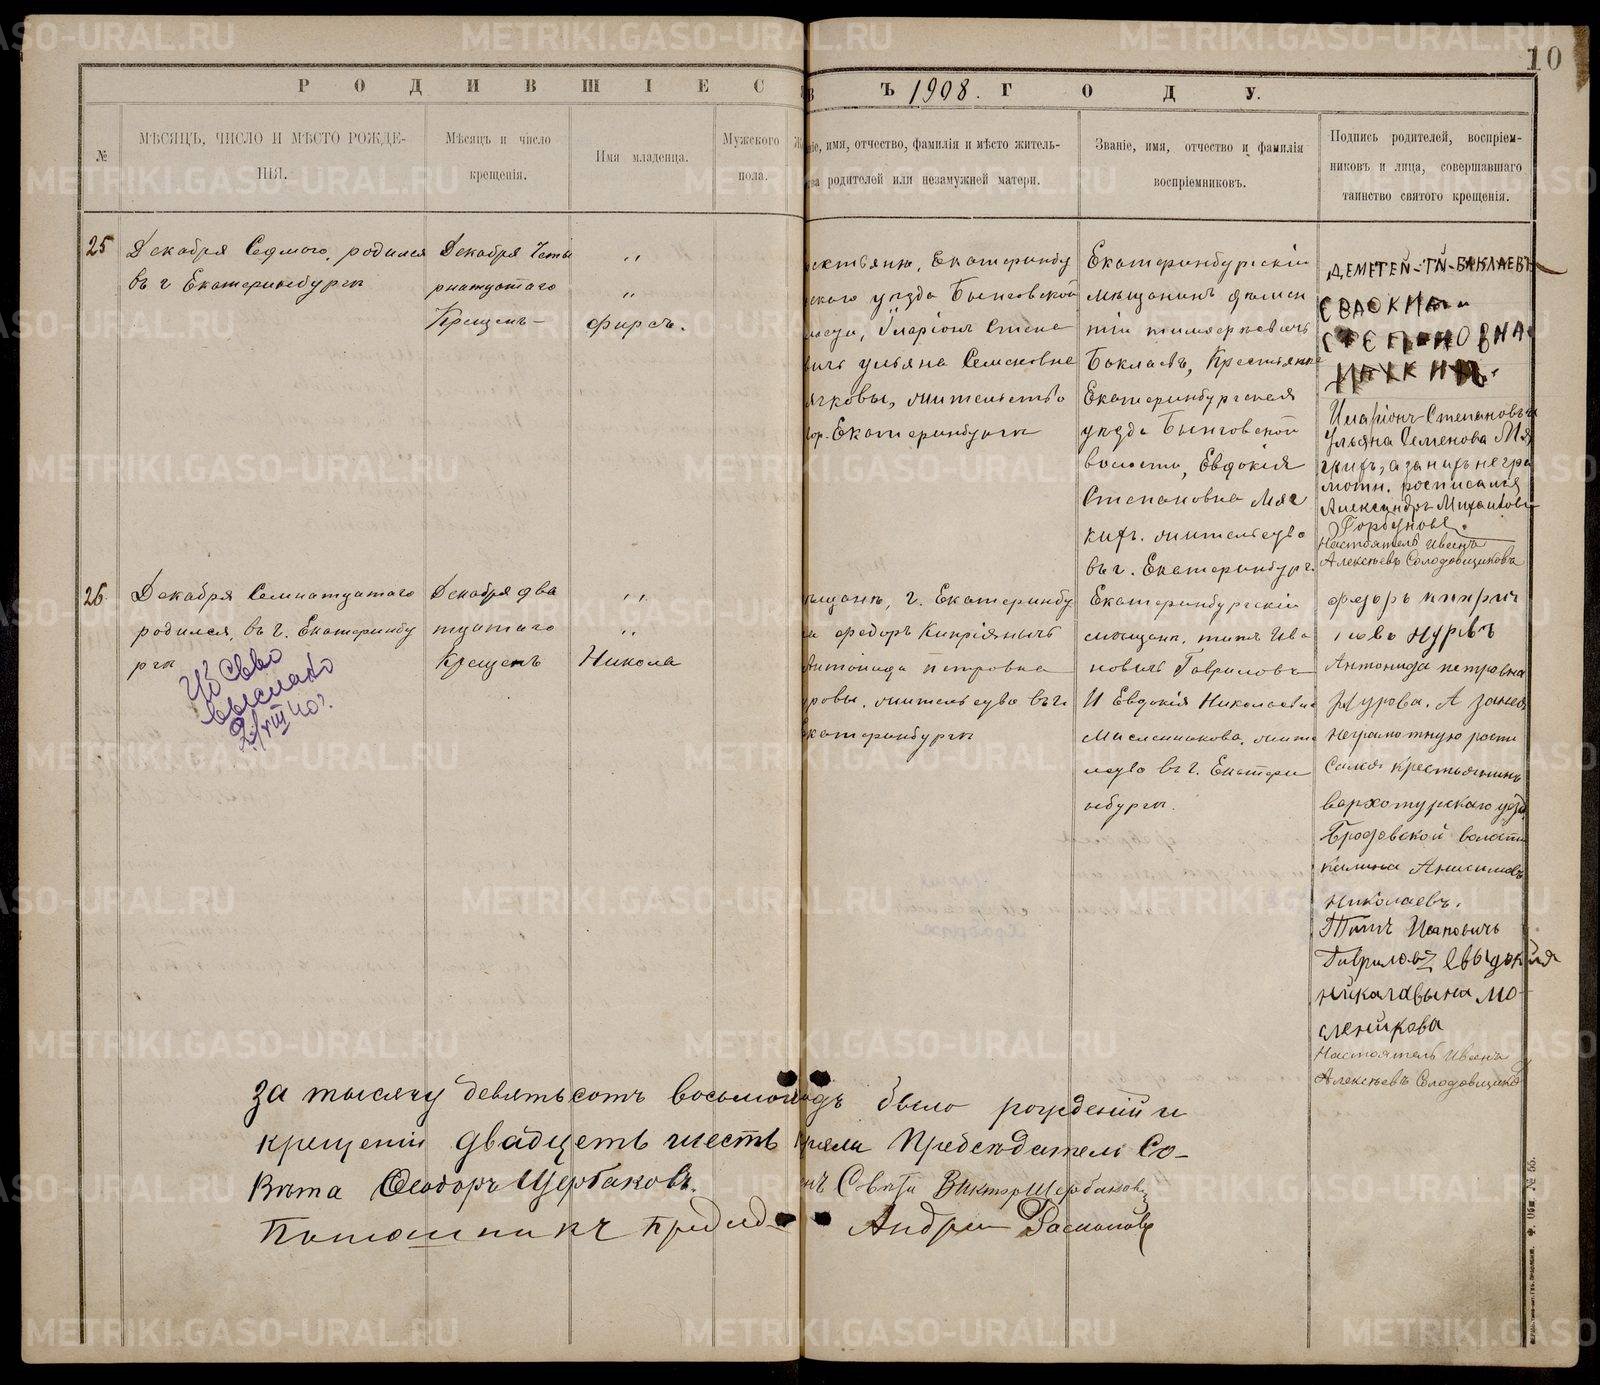 10
РОДИВШІЕС
В Ъ 1908. ГОДУ.
№
МѢСЯЦЪ, ЧИСЛО И МѢСТО РОЖДЕ-
НІЯ.
Мѣсяцъ и число
крещенія.
Имя младенца.
Мужского
пола.
ніе, имя, отчество, фамилія и мѣсто житель-
ва родителей или незамужней матери.
Званіе, имя, отчество и фамилія
воспріемниковъ.
Подпись родителей, воспріем-
никовъ и лица, совершавшаго
таинство святого крещенія.
25
Декабря Седмого, родился
въ г Екатеринбурги
Декабря Четы
рнатцатаго
Крещенъ
Фирсъ.
Екатеринбу
ского уезда Бынговской
Иларіонъ Степа
вичъ Ульяна Семеновна
ягковы, жительство
гор. Екатеринбурги
Екатеринбургскій
мещанинъ
Баклаевъ, Крестьянка
Екатеринбургская
уезда Бынговской
волости, Евдокія
Степановна Мяг
кихъ. жительсво
въ г. Екатеринбург.
ДЕМЕТЕЙ-ТЙ-БАКЛАЕВЪ
ЕВДОКИЯ
СТЕПАНОВНА
Иларіонъ Степановъ
Ульяна Семенова Мя
гкихъ, а за нихъ негра
мотн. росписался
Александръ Михаиловъ
Горбуновъ.
Настоятель Иванъ
Алексѣевъ Солодовщиковъ
26.
Декабря Семнатцатаго
родился, въ г. Екатеринбу
рги
Декабря два
тцатаго
Крещенъ
Никола
г. Екатеринбу
Федоръ Кипріянычъ
Антонида Петровна
уровы. жительсво въ г.
Екатеринбурги
Екатеринбургскій
мещанн. Титъ Ива
новичъ Гавриловъ
И Евдокія Николаевна
Масленникова. жите
льсво въ г. Екатери
нбурги.
Антонида петровна
Шурова. А за нея
неграмотную роспи
сался крестьянинъ
Верхотурскаго уезд
Бродовской волости
Калина Анисимовъ
Николаевъ.
Титъ Ивановичъ
Гавриловъ Евыдокия
никалавына Ма-
сленикова
Настоятель Иванъ
Алексѣевъ Солодовщиков
Св-во
выслано
2/VIII 40г.
За тысячу девятьсотъ восьмой годъ было рождений и
крещеній двадцеть шесть Предсѣдатель Со-
вѣта Феодоръ Щербаковъ. Совѣта Викторъ Щербаковъ
Андрей
METRIKI.GASO-URAL.RU